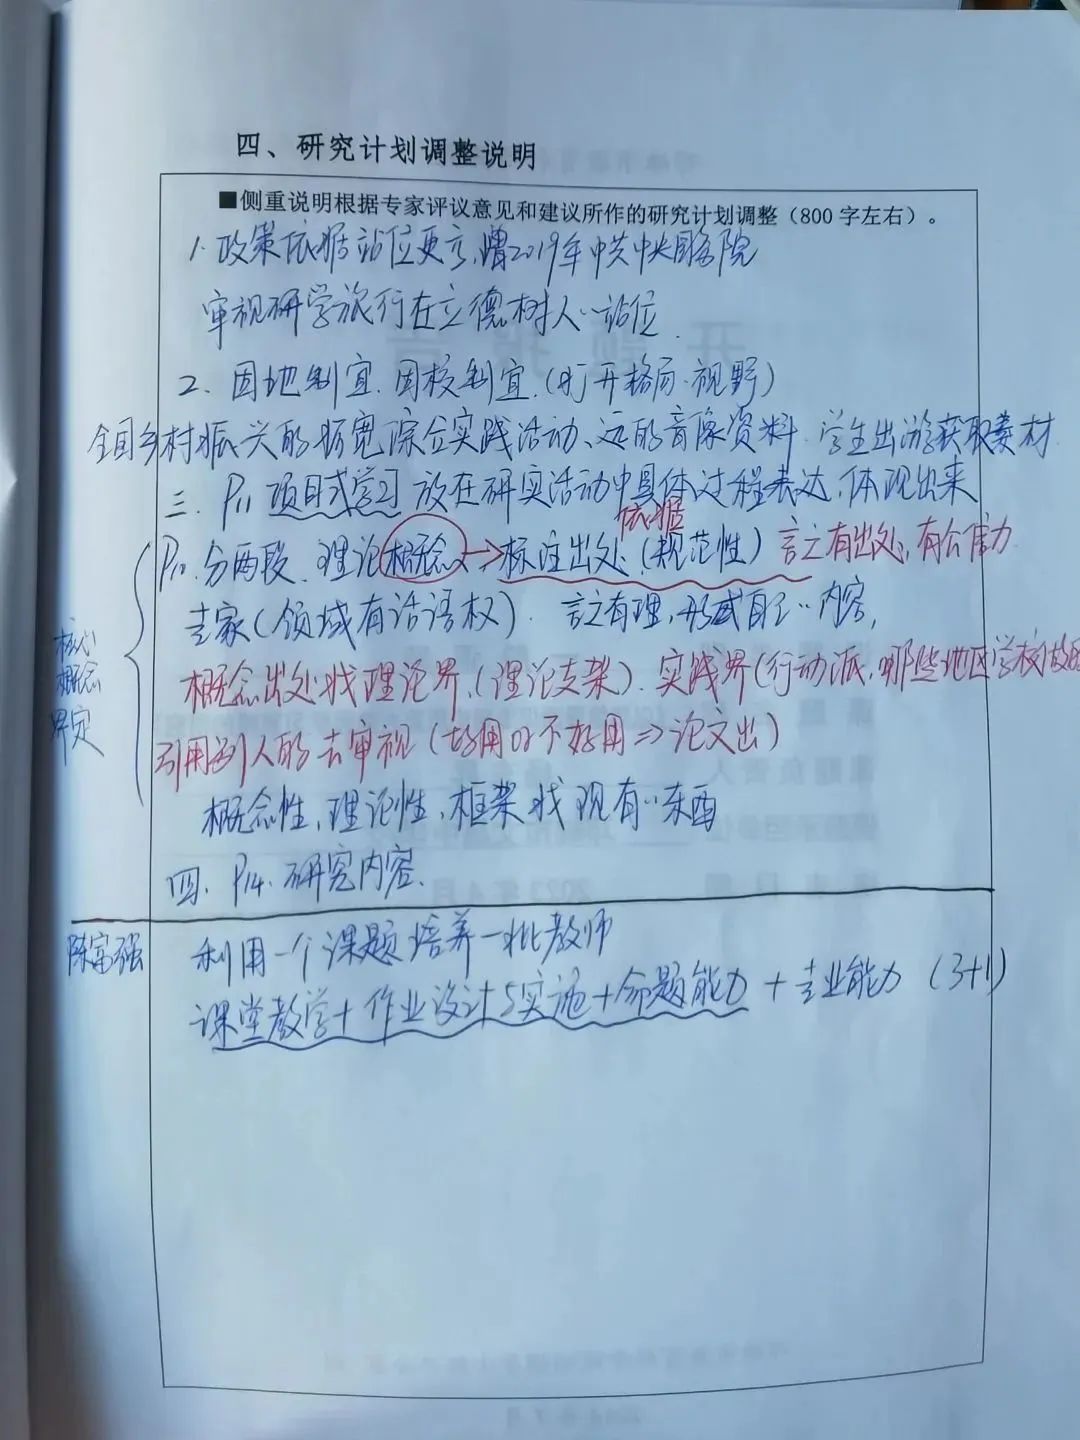 四、研究计划调整说明
■侧重说明根据专家评议意见和建议所作的研究计划调整（800 字左右）。
1. 政策依据站位更高，增2019年中共中央国务院
审视研学旅行在立德树人··站位.
2、因地制宜. 因校制宜.(打开格局·视野)
全国乡村振兴的拓宽综合实践活动、远的音像资料. 学生出游获取素材
三. P11 项目式学习 放在研实活动中具体过程表达, 体现出来
依据
P10. 分两段. 理论概念→标注出处 (规范性) 言之有出处, 有公信力
专家(领域有话语权). 言之有理, 形成自己··内容,
核心概念界定
概念出处找理论界,(理论支架). 实践界(行动派, 哪些地区学校做的
引用到人的去审视 (好用or不好用⇒论文出)
概念性, 理论性, 框架找现有··东西
四. P14. 研究内容.
陈富强 利用一个课题培养一批教师
课堂教学+作业设计与实施+命题能力+专业能力 (3+1)